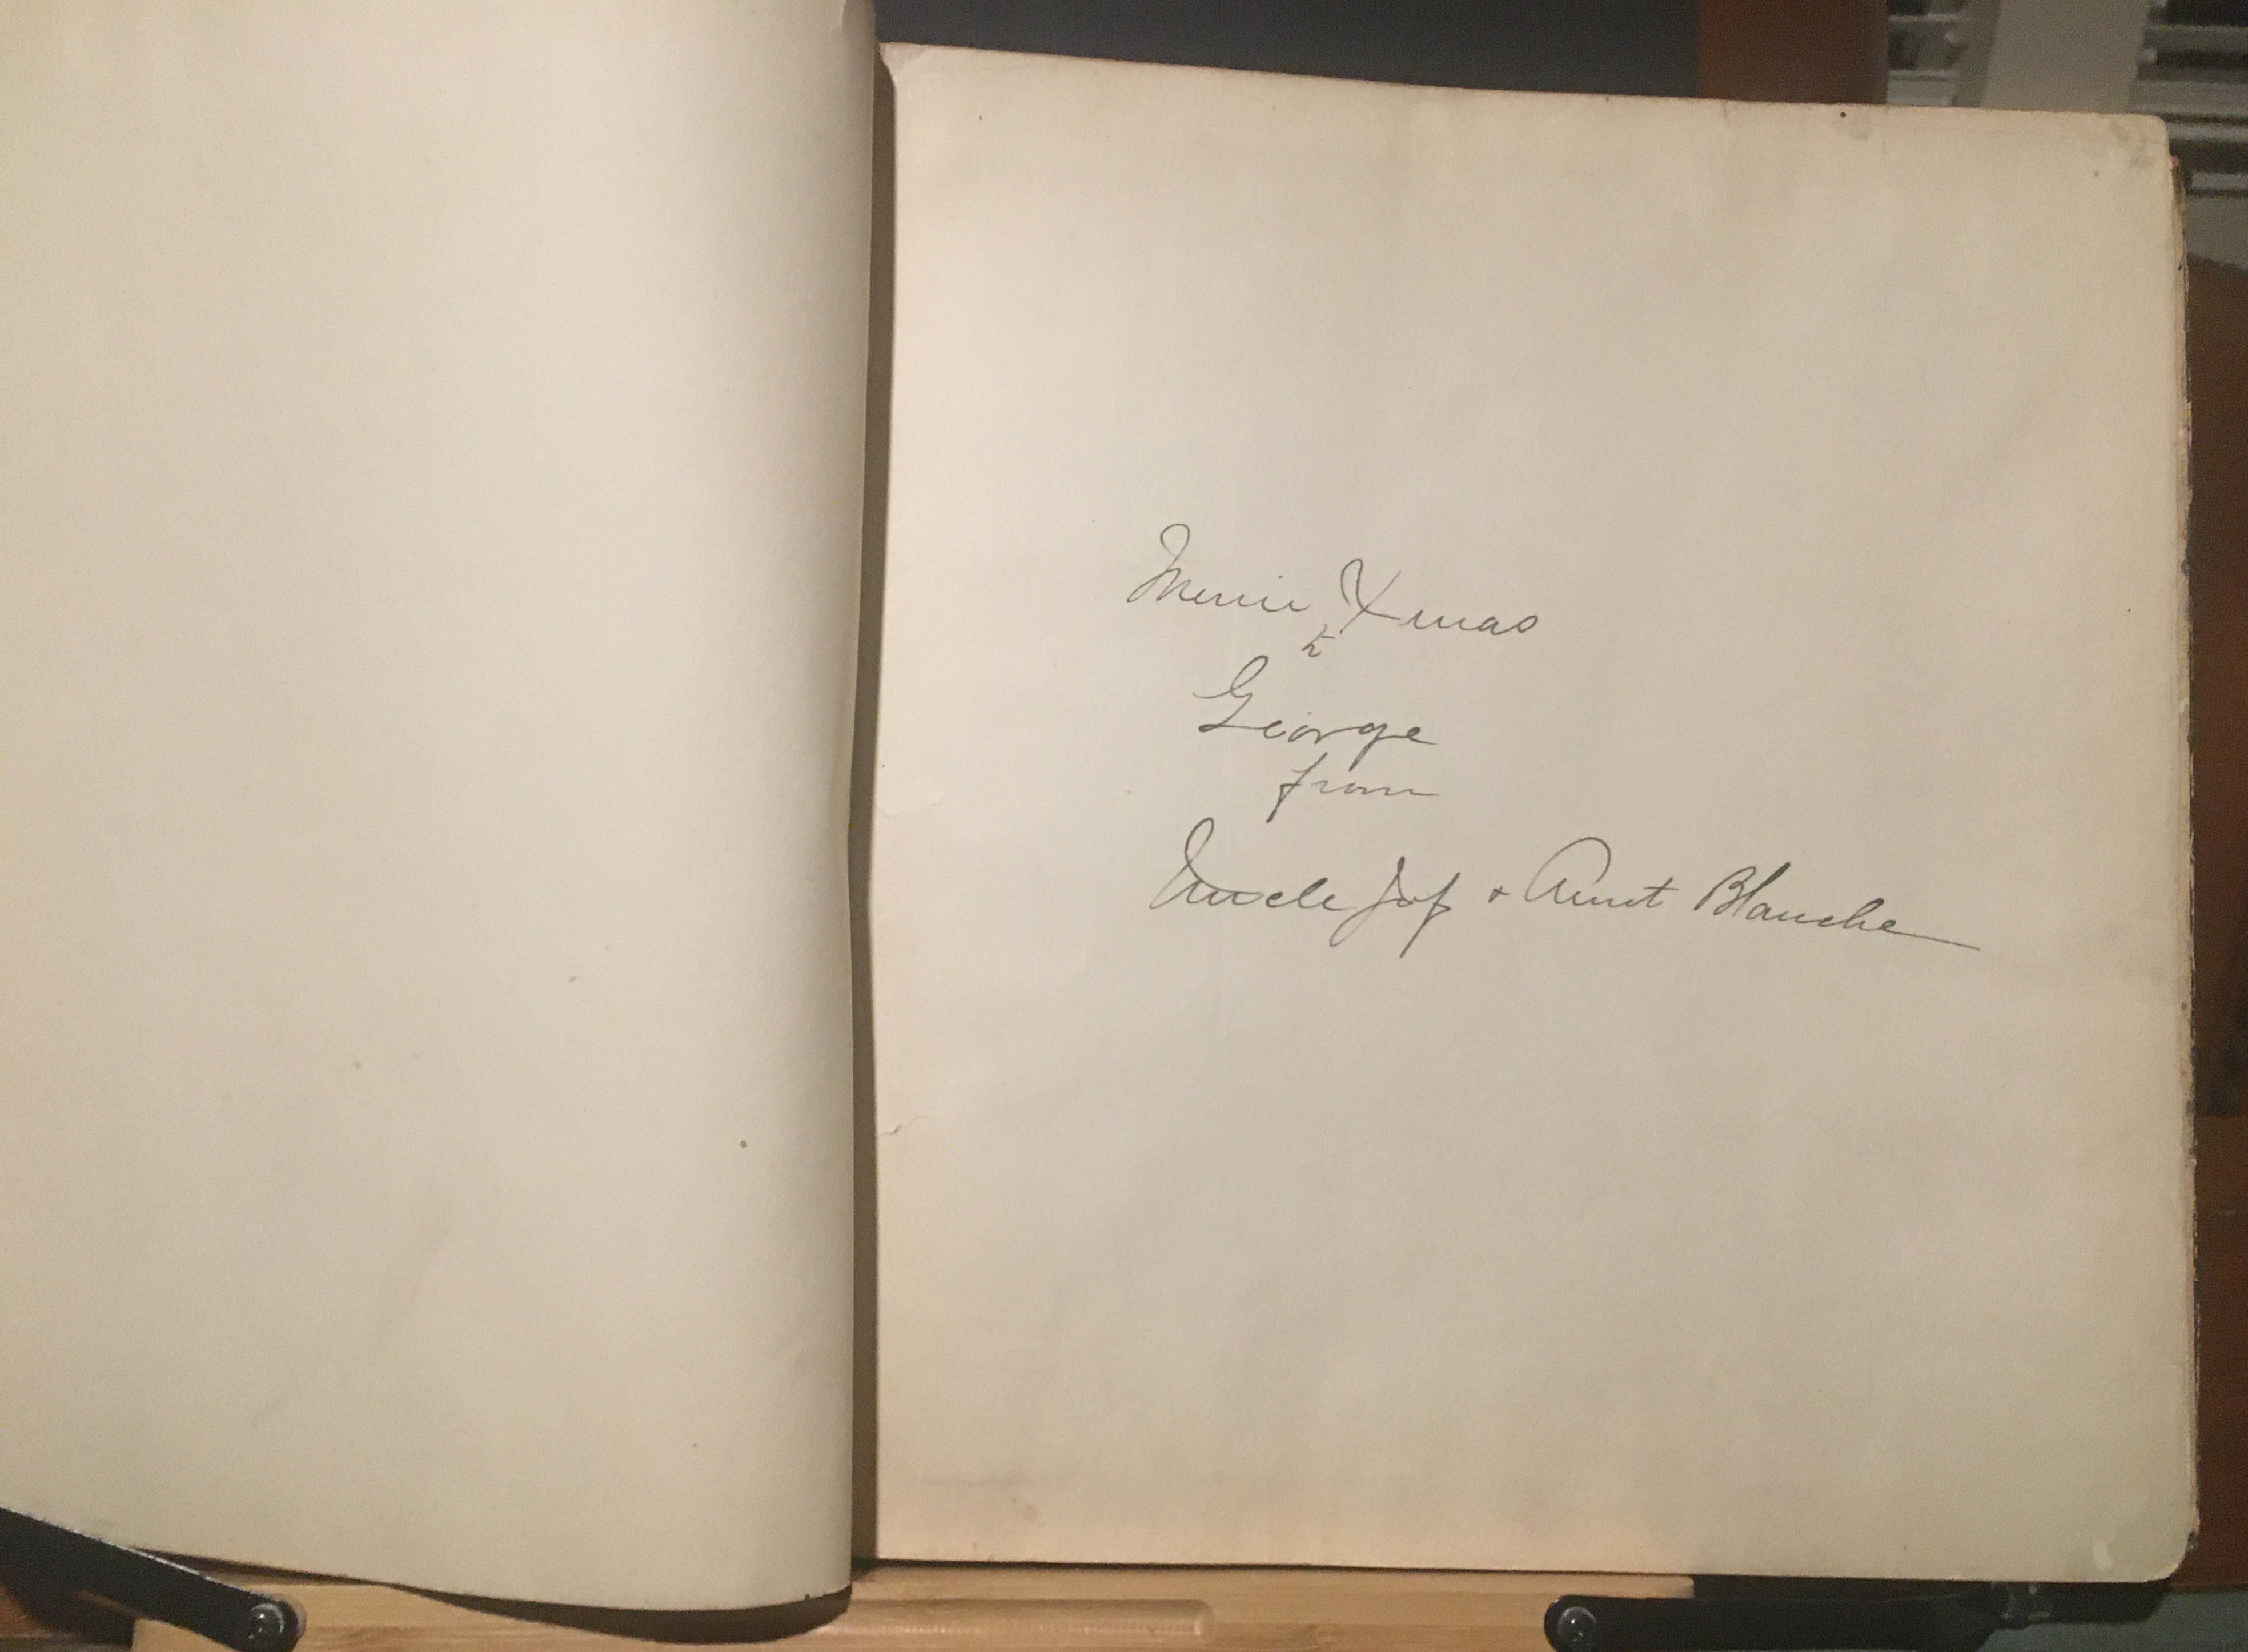 Merrie Xmas
to
George
from
Uncle & Aunt Blanche